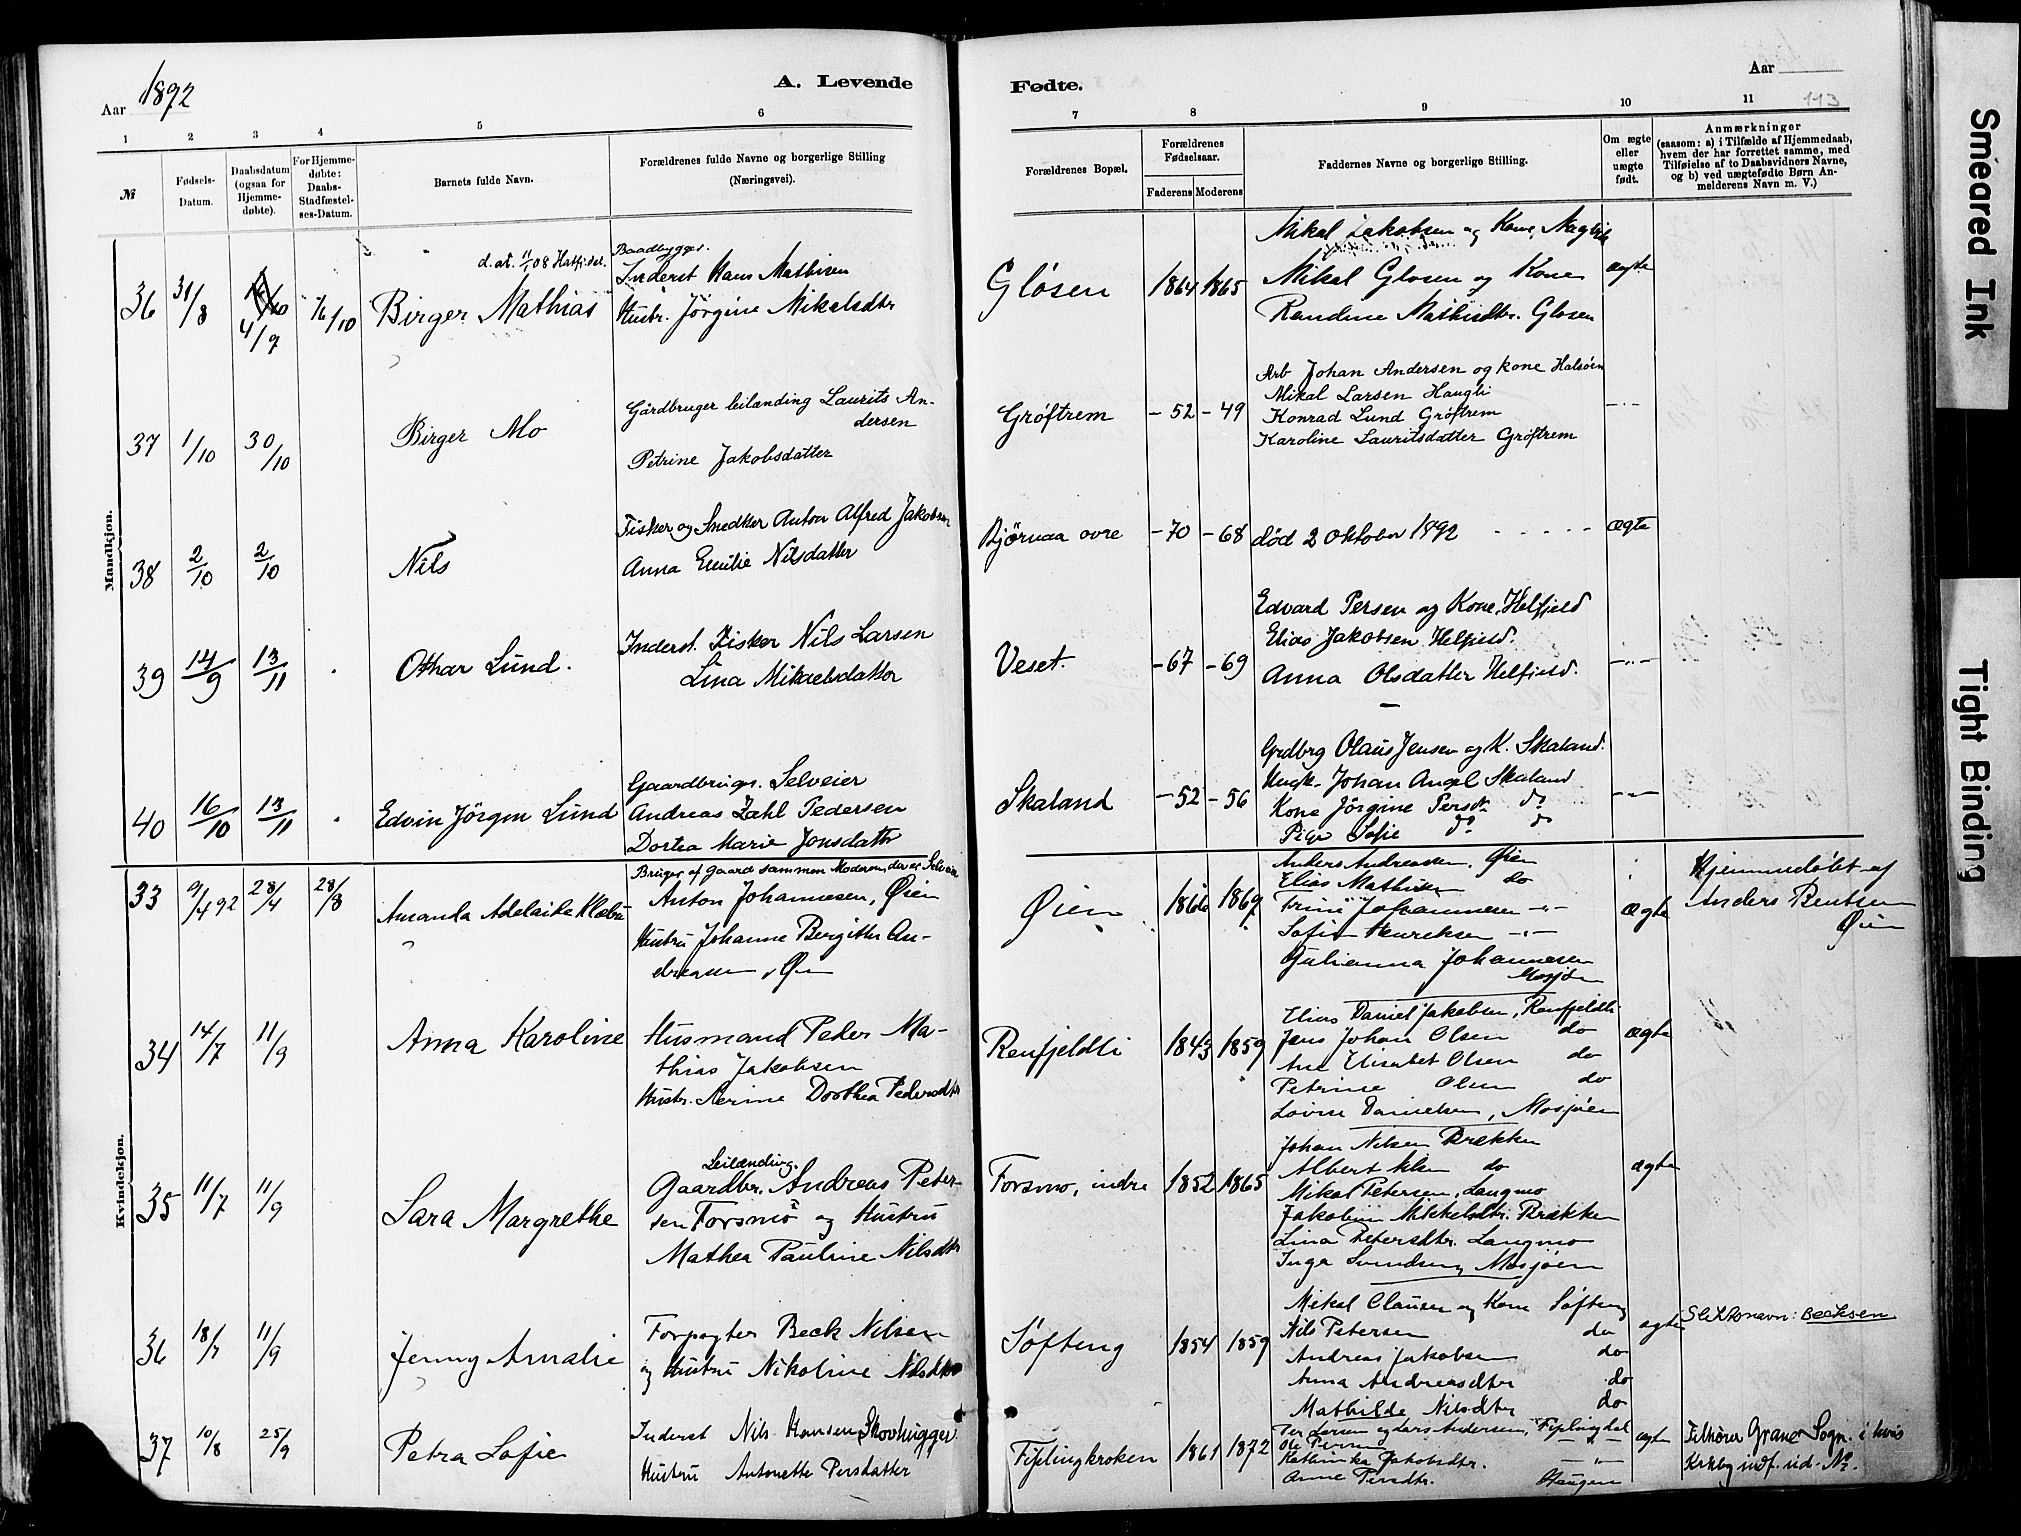 Aar 1892
A. Levende
Fødte.
Aar
113
1 2 3 4 5 6 7 8 9 10 11
№
Fødsels-
Datum.
Daabsdatum
(ogsaa for
Hjemme-
døbte).
For Hjemme-
døbte:
Daabs-
Stadfæstel-
ses-Datum.
Barnets fulde Navn.
Forældrenes fulde Navne og borgerlige Stilling
(Næringsvei).
Forældrenes Bopæl.
Forældrenes
Fødselsaar.
Faderens Moderens
Faddernes Navne og borgerlige Stilling.
Om ægte
eller
uægte
født.
Anmærkninger
(saasom: a) i Tilfælde af Hjemmedaab,
hvem der har forrettet samme, med
Tilføielse af to Daabsvidners Navne,
og b) ved uægtefødte Børn An-
melderens Navn m. V.)
Mandkjøn.
36 31/8 4/9 16/10 Birger Mathias
d. at. 11/1 08 Hatfj.del.
Baadbygger.
Inderst Hans Mathisen
Hustr. Jörgine Mikalsdtr
Gløsen 1864 1865
Mikal Jakobsen og Kone,
Mikal Glosen og Kone
Rendine Mathisdtr. Glosen
ægte
37 1/10 30/10 Birger Mo
Gårdbruger leilænding Laurits An-
dersen
Petrine Jakobsdatter
Grøftrem -52 -49
Arb Johan Andersen og kone Halsöen
Mikal Larsen Haugli
Konrad Lund Grøftrem
Karoline Lauritsdatter Grøftrem
-"-
38 2/10 2/10 Nils
Fisker og Snedker Anton Alfred Jakobsen
Anna Emilie Nilsdatter
Bjørnaa øvre -70 -68
død 2 Oktober 1892
ægte
39 14/9 13/11 Otthar Lund.
Inderst. Fisker Nils Larsen
Lina Mikaelsdatter
Veset. -67 -69
Edvard Persen og Kone, Helfjeld
Elias Jakobsen Helfjeld.
Anna Olsdatter Helfjeld.
-"-
40 16/10 13/11 Edvin Jörgen Lund
Gaardbruger. Selveier
Andreas Zahl Pedersen
Dortea Marie Jonsdatter
Skaland -52 -56
Grdbrg Olaus Jensen og K. Skaland.
Ungk. Johan Angel Skaland
Kone Jörgine Persdt. do
Pige Sofie do do
-"-
Kvindekjøn.
33 9/4 92 28/4 28/8 Amanda Adelaide Klæbu
Bruger af Gaard sammen Moderen, der er Selveier
Anton Johannesen, Øien
Hustru Johanne Bergitte An-
dreassen, Øien
Øien 1866 1869
Anders Andreassen, Øien
Elias Mathisen do
Trine Johannesen -"-
Sofie Henriksen -"-
Julianna Johannesen
Mosjøen
ægte
Hjemmedøbt af
Anders Bentsen
Øien
34 14/7 11/9 Anna Karoline
Husmand Peder Ma-
thias Jakobsen
Hustr. Nerine Dorthea Pedersdtr
Renfjeldli 1843 1859
Elias Daniel Jakobsen, Renfjeldli
Jens Johan Olsen do
Ane Elisabet Olsen do
Petrine Olsen do
Lovise Danielsen, Mosjøen
ægte
35 11/7 11/9 Sara Margrethe
Leilænding.
Gaardbr. Andreas Peter-
sen Forsmo og Hustru
Mathea Pauline Nilsdtr
Forsmo, indre 1852 1865
Johan Nilsen Brækken
Albert do
Mikal Petersen, Langmo
Jakobine Mikkelsdtr. Brækken
Lina Petersdtr. Langmo
Inga Svendsen, Mosjøen
ægte
36 18/7 11/9 Jenny Amalie
Forpagter Beck Nilsen
og Hustru Nikoline Nilsdtr
Søfteng 1854 1859
Mikal Clausen og Kone Søfteng
Nils Petersen do
Andreas Jakobsen do
Anna Andreasdtr do
Mathilde Nilsdtr do
ægte
Slektsnavn: Becksen
37 10/8 25/9 Petra Sofie
Inderst Nils Hansen, Skovhugger
Hustru Antonette Persdatter
Fiplingkroken 1861 1872
Per Larsen og Lars Andersen, Fiplingdal
Ole Persen -"-
Kathinka Jakobsdtr. -"-
Anne Persdtr. Haugen
ægte
Tilhører Grane Sogn. i hvis
Krkbg indf. ud. No.
Smeared Ink
Tight Binding